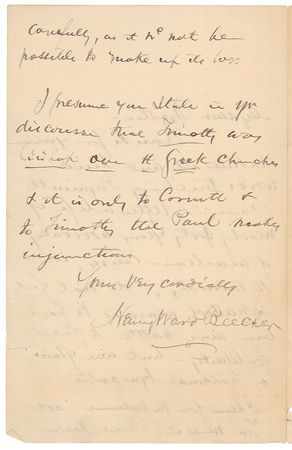 Carefully, as it wd not be
possible to make up its loss.
I presume you state in yr
discourse that Timothy was
bishop over the Greek Churches
& it is only to Corinth &
to Timothy that Paul makes
injunctions
Yours Very cordially
Henry Ward Beecher